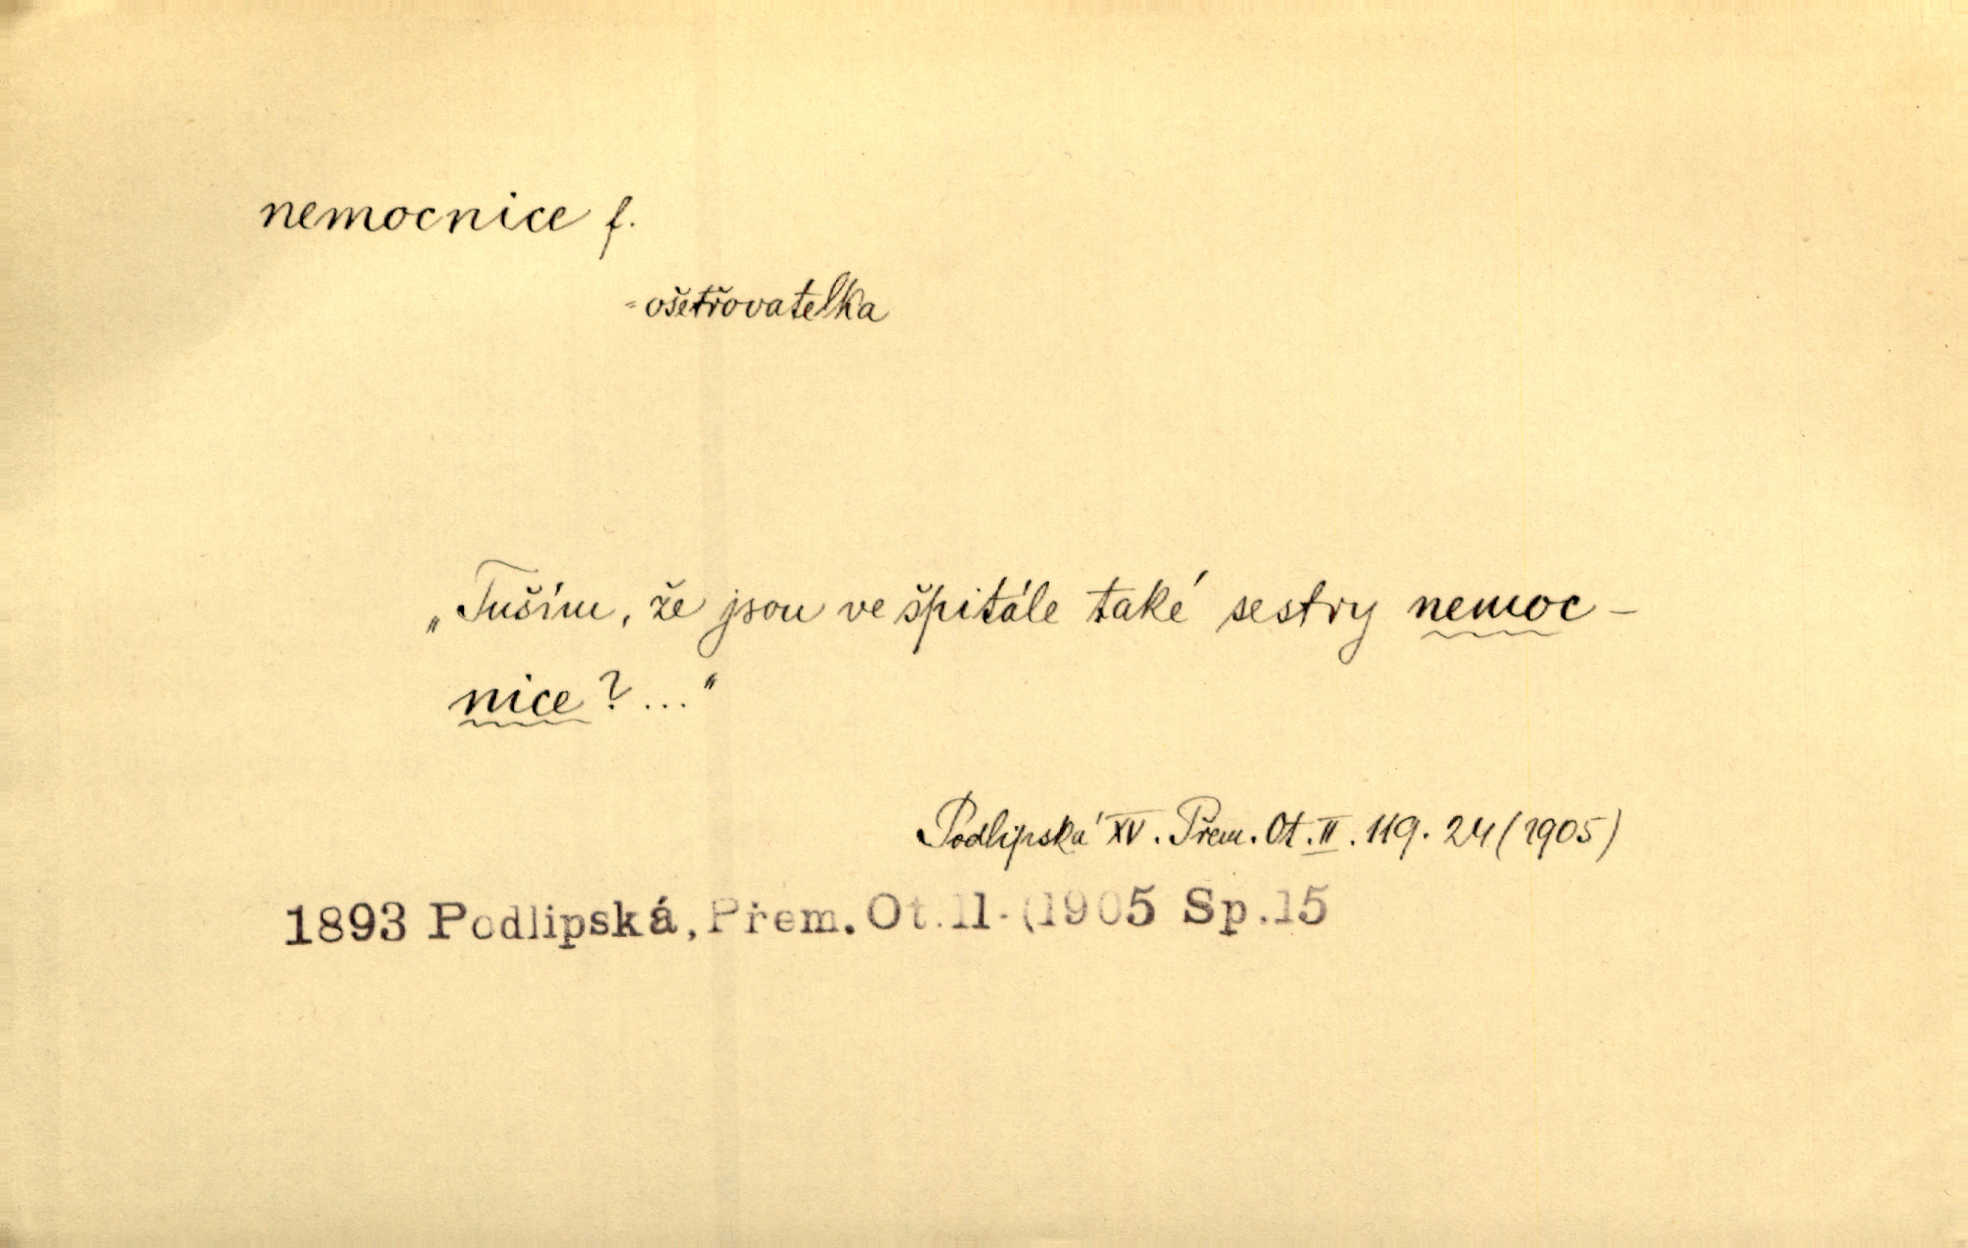 nemocnice f.
= ošetřovatelka
„Tuším, že jsou ve špitále také sestry nemoc-
nice? ..."
Podlipská XV. Přem. Ot. II. 119. 24 (1905)
1893 Podlipská, Přem. Ot.ll-(1905 Sp.15